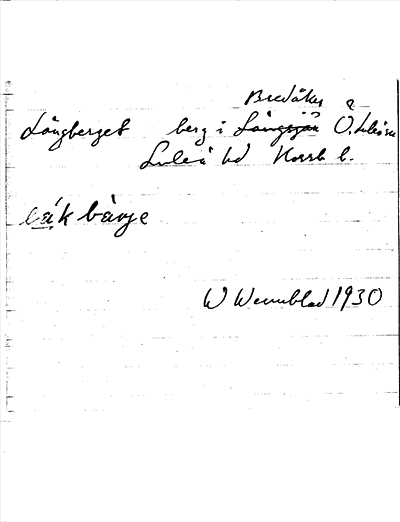 Bredåker
Långberget berg i Långsjön Ö. Luleå sn
Luleå hd Norrb l.
lák bàrje
W Wennblad 1930